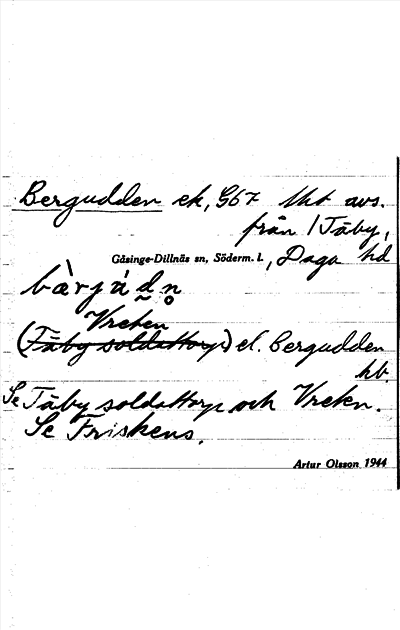 Bergudden ek, G67 1kt avs.
från 1 Täby,
Gåsinge-Dillnäs sn, Söderm. l., Daga hd
bàrjúdn
Vreten
(Täby soldattorp) el. Bergudden
hb.
Se Täby soldattorp och Vreten.
Se Friskens.
Artur Olsson 1944